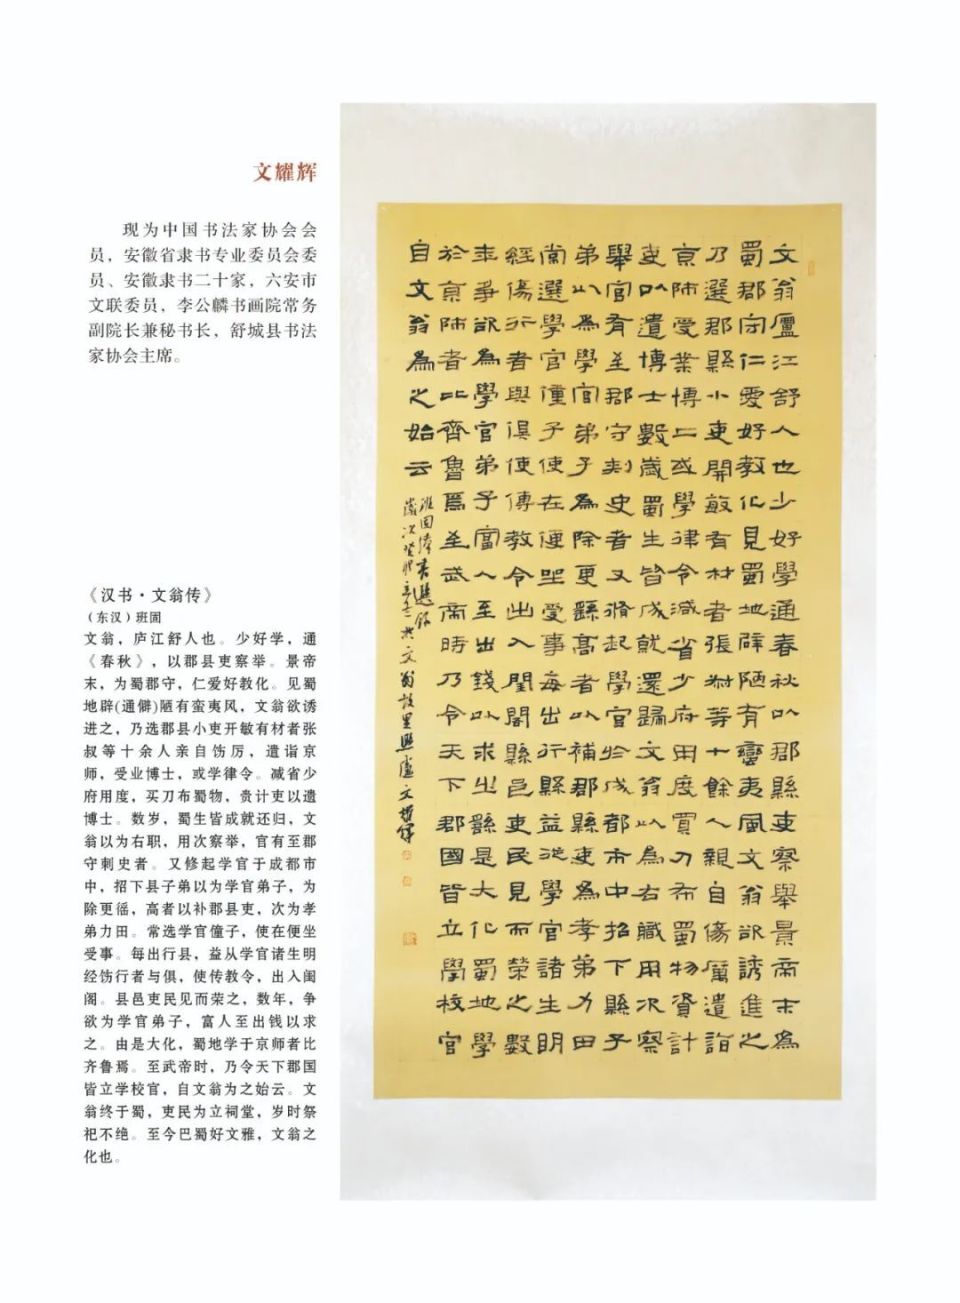 文耀辉
现为中国书法家协会会
员，安徽省隶书专业委员会委
员、安徽隶书二十家，六安市
文联委员，李公麟书画院常务
副院长兼秘书长，舒城县书法
家协会主席。
《汉书·文翁传》
（东汉）班固
文翁，庐江舒人也。少好学，通
《春秋》，以郡县吏察举。景帝
末，为蜀郡守，仁爱好教化。见蜀
地辟(通僻)陋有蛮夷风，文翁欲诱
进之，乃选郡县小吏开敏有材者张
叔等十余人亲自饬厉，遣诣京
师，受业博士，或学律令。减省少
府用度，买刀布蜀物，赍计吏以遗
博士。数岁，蜀生皆成就还归，文
翁以为右职，用次察举，官有至郡
守刺史者。又修起学官于成都市
中，招下县子弟以为学官弟子，为
除更徭，高者以补郡县吏，次为孝
弟力田。常选学官僮子，使在便坐
受事。每出行县，益从学官诸生明
经饬行者与俱，使传教令，出入闺
阁。县邑吏民见而荣之，数年，争
欲为学官弟子，富人至出钱以求
之。由是大化，蜀地学于京师者比
齐鲁焉。至武帝时，乃令天下郡国
皆立学校官，自文翁为之始云。文
翁终于蜀，吏民为立祠堂，岁时祭
祀不绝。至今巴蜀好文雅，文翁之
化也。
文翁廬江舒人也少好學通春秋以郡縣吏察舉景帝末為
蜀郡守仁愛好教化見蜀地辟陋有蠻夷風文翁欲誘進之
乃選郡縣小吏開敏有材者張叔等十餘人親自飭厲遣詣
京師受業博士或學律令減省少府用度買刀布蜀物賫計
吏以遺博士數歲蜀生皆成就還歸文翁以為右職用次察
舉官有至郡守刺史者又脩起學官於成都市中招下縣子
弟以為學官弟子為除更繇高者以補郡縣吏為孝弟力田
常選學官僮子使在便坐受事每出行縣益從學官諸生明
經飭行者與俱使傳教令出入閨閣縣邑吏民見而榮之數
年爭欲為學官弟子富人至出錢以求之繇是大化蜀地學
於京師者比齊魯焉至武帝時乃令天下郡國皆立學校官
自文翁為之始云
班固漢書選錄
歲次癸卯立冬於文翁故里廬文耀輝